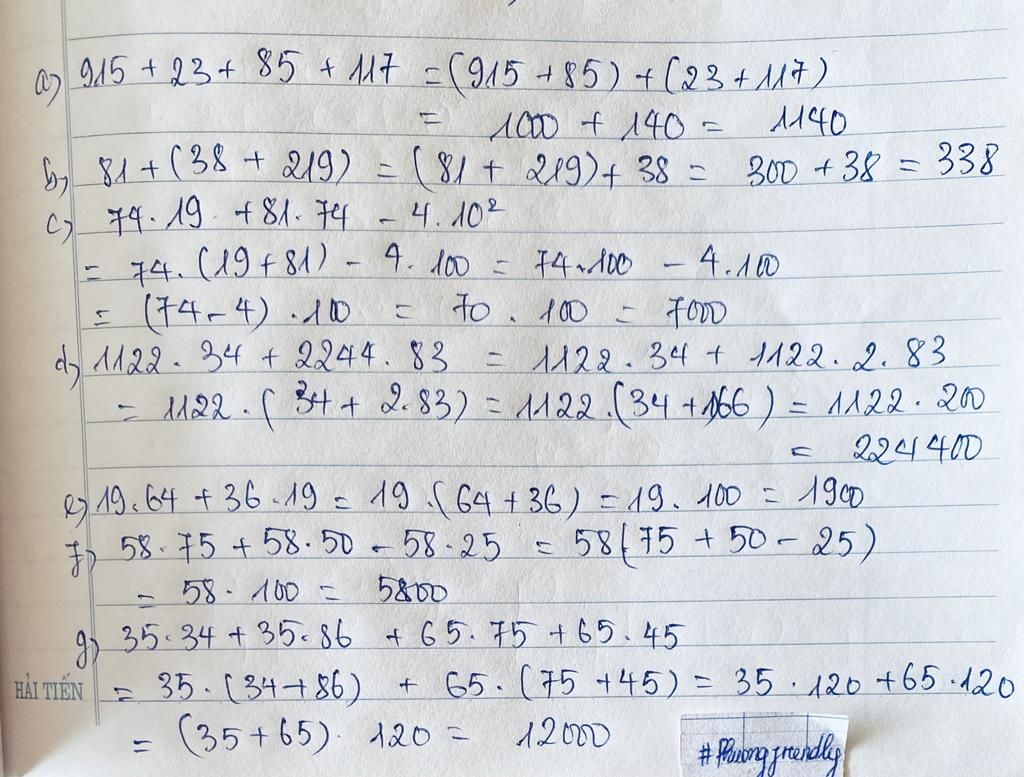 a) 915 + 23 + 85 + 117 = (915 + 85) + (23 + 117)
= 1000 + 140 = 1140
b) 81 + (38 + 219) = (81 + 219) + 38 = 300 + 38 = 338
c) 74 . 19 + 81 . 74 - 4 . 10²
= 74 . (19 + 81) - 4 . 100 = 74 . 100 - 4 . 100
= (74 - 4) . 100 = 70 . 100 = 7000
d) 1122 . 34 + 2244 . 83 = 1122 . 34 + 1122 . 2 . 83
= 1122 . (34 + 2.83) = 1122 . (34 + 166) = 1122 . 200
= 224400
e) 19 . 64 + 36 . 19 = 19 . (64 + 36) = 19 . 100 = 1900
f) 58 . 75 + 58 . 50 - 58 . 25 = 58 (75 + 50 - 25)
= 58 . 100 = 5800
g) 35 . 34 + 35 . 86 + 65 . 75 + 65 . 45
= 35 . (34 + 86) + 65 . (75 + 45) = 35 . 120 + 65 . 120
HẢI TIẾN
= (35 + 65) . 120 = 12000
#Phuongfriendly